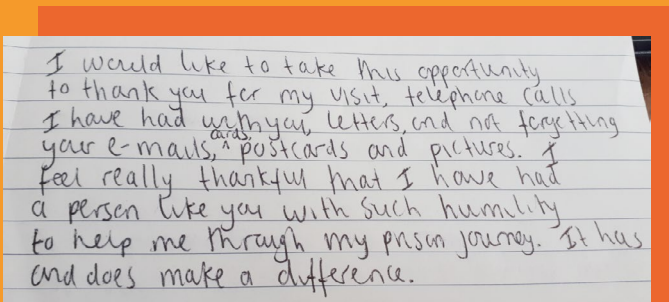 I would like to take this opportunity
to thank you for my visit, telephone calls
I have had with you, letters, and not forgetting
your e-mails, ^cards, postcards and pictures. I
feel really thankful that I have had
a person like you with such humility
to help me through my prison journey. It has
and does make a difference.